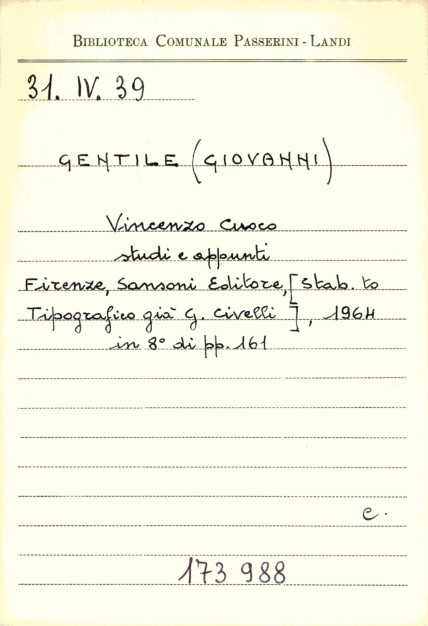 BIBLIOTECA COMUNALE PASSERINI - LANDI
31. IV. 39
GENTILE (GIOVANNI)
Vincenzo Cuoco
studi e appunti
Firenze, Sansoni Editore, [Stab. to
Tipografico già G. Civelli ], 1964
in 8° di pp. 161
c.
173 988